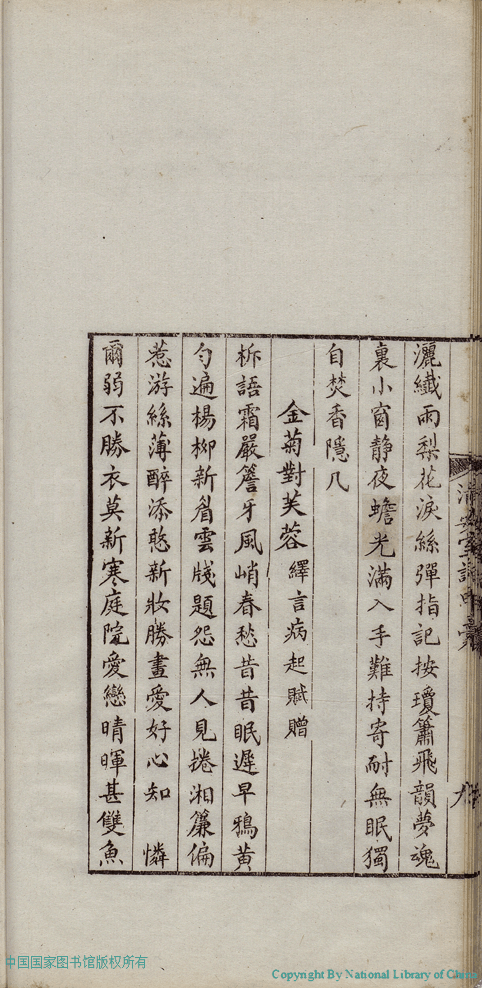 灑纖雨梨花淚絲彈指記按瓊簫飛韻夢魂
裏小窗靜夜蟾光滿入手難持寄耐無眠獨
自焚香隱几
金菊對芙蓉 繹言病起賦贈
柝語霜嚴簷牙風峭春愁昔昔眠遲早鴉黃
勻遍楊柳新眉雲牋題怨無人見捲湘簾偏
惹游絲薄醉添憨新妝勝畫愛好心知 憐
爾弱不勝衣莫新寒庭院愛戀晴暉甚雙魚
中国国家图书馆版权所有
Copyright By National Library of China